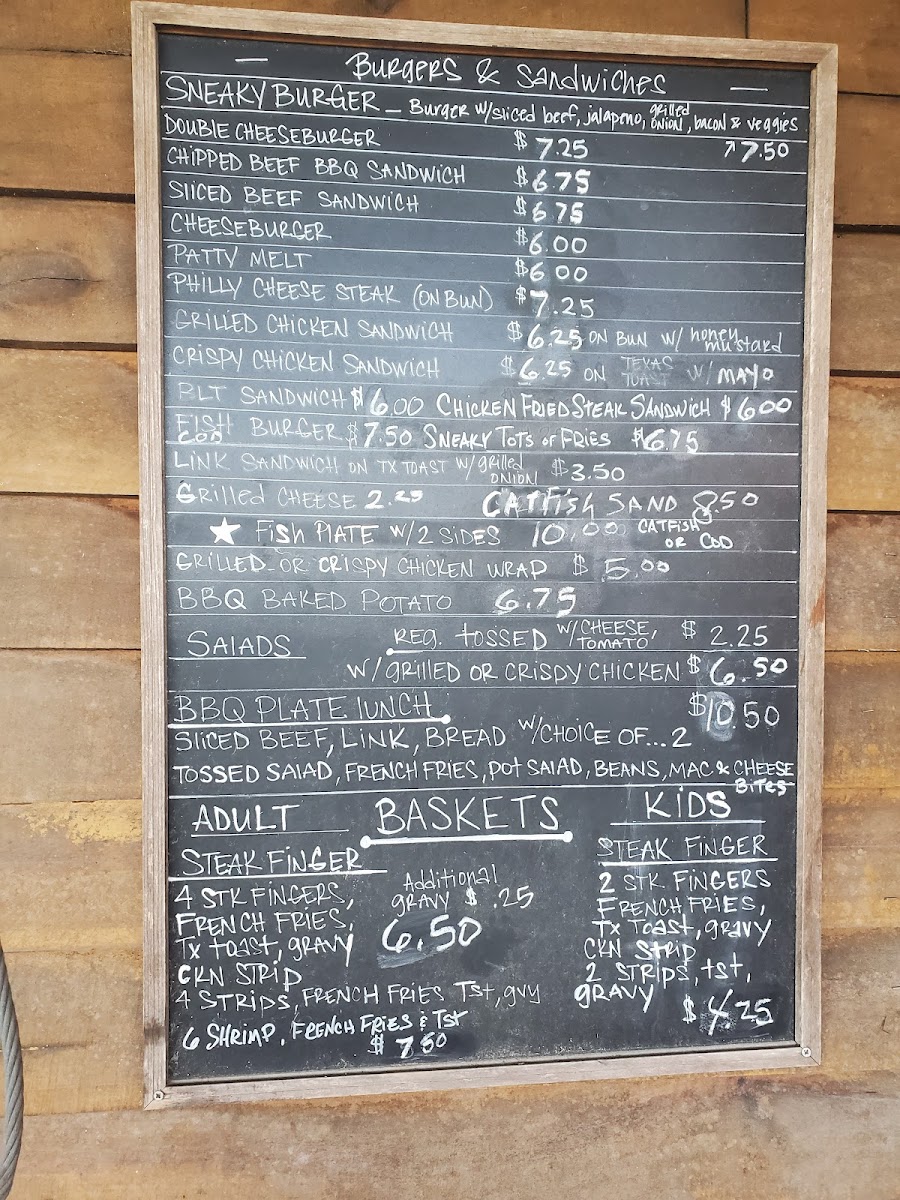 — BURGERS & SANDWICHES —
SNEAKY BURGER – BURGER W/sliced beef, jalapeno, grilled ONION, bacon & veggies
DOUBLE CHEESEBURGER $ 7.25 ↗7.50
CHIPPED BEEF BBQ SANDWICH $6.75
SLICED BEEF SANDWICH $6.75
CHEESEBURGER $6.00
PATTY MELT $6.00
PHILLY CHEESE STEAK (ON BUN) $7.25
GRILLED CHICKEN SANDWICH $6.25 ON BUN W/ honey mustard
CRISPY CHICKEN SANDWICH $6.25 ON TEXAS TOAST W/ MAYO
BLT SANDWICH $6.00 CHICKEN FRIED STEAK SANDWICH $6.00
FISH COD BURGER $7.50 SNEAKY TOTS OR FRIES $6.75
LINK SANDWICH ON TX TOAST W/ grilled ONION $3.50
GRILLED CHEESE 2.25 CATFISH SAND 8.50
★ FISH PLATE W/2 SIDES 10.00 CATFISH OR COD
GRILLED OR CRISPY CHICKEN WRAP $5.00
BBQ BAKED POTATO 6.75
SALADS REG. TOSSED W/CHEESE, TOMATO $ 2.25
W/ GRILLED OR CRISPY CHICKEN $6.50
BBQ PLATE LUNCH $10.50
SLICED BEEF, LINK, BREAD W/CHOICE OF... 2
TOSSED SALAD, FRENCH FRIES, POT SALAD, BEANS, MAC & CHEESE BITES
ADULT BASKETS KIDS
STEAK FINGER
4 STK FINGERS,
FRENCH FRIES,
TX TOAST, gravy
Additional
GRAVY $ .25
6.50
CKN STRIP
4 STRIPS, FRENCH FRIES TST, gvy
6 SHRIMP, FRENCH FRIES & TST
$ 7.50
STEAK FINGER
2 STK FINGERS
FRENCH FRIES,
TX TOAST, gravy
CKN STRIP
2 STRIPS, tst,
GRAVY
$ 4.25